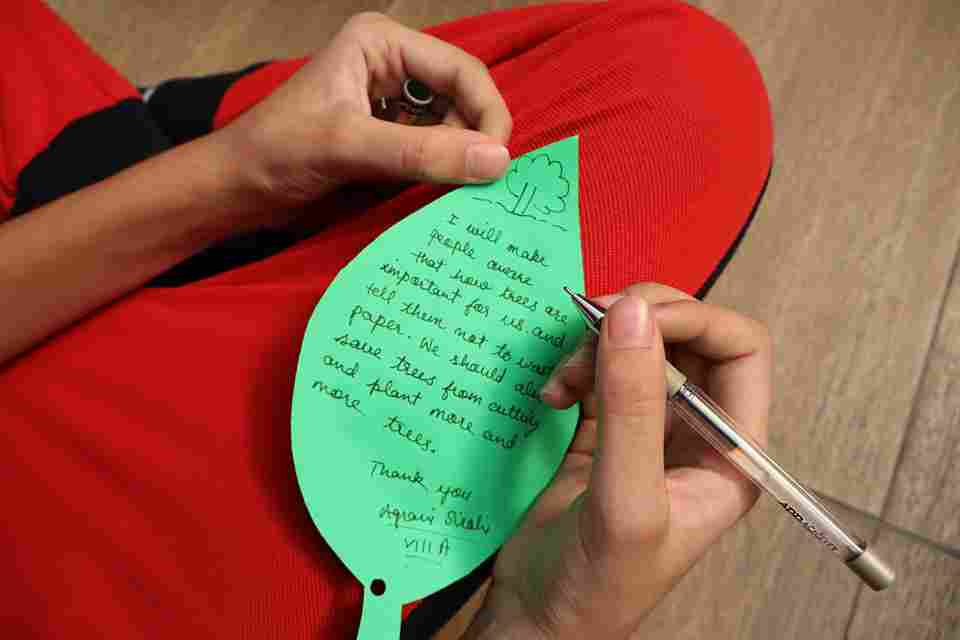 I will make
people aware
that how trees are
important for us and
tell them not to
paper. We should also
save trees from cutting
and plant more and
more trees.
Thank you
VIII A